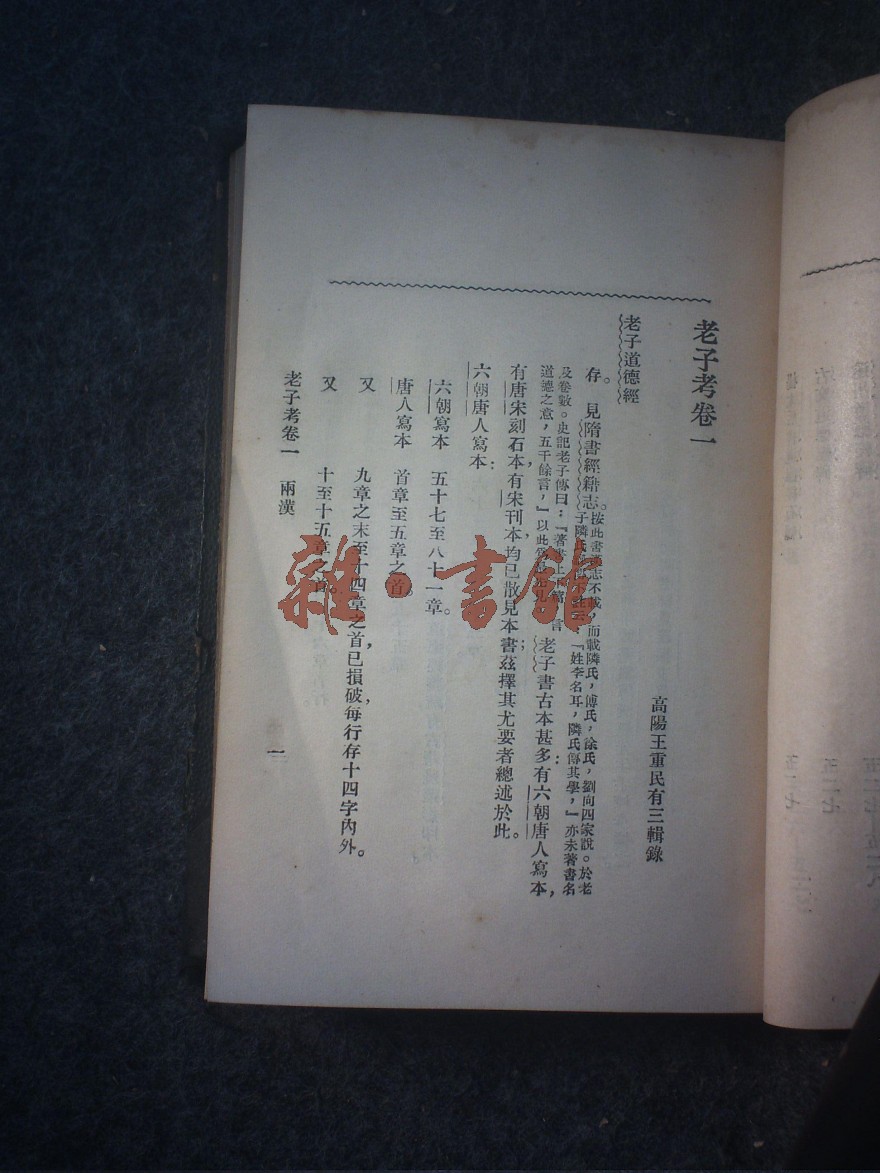 老子考卷一
高陽王重民有三輯錄
老子道德經
存。見隋書經籍志。按此書漢志不載,而載隣氏,傅氏,徐氏,劉向四家說。於老
子隣氏「姓李名耳,隣氏傳其學,」亦未著書名
及卷數。史記老子傳曰:「著書上下篇,言
道德之意,五千餘言,」以此老子書古本甚多:有六朝唐人寫本,
有唐宋刻石本,有宋刊本,均已散見本書;茲擇其尤要者總述於此。
六朝唐人寫本:
六朝寫本 五十七至八十一章。
唐人寫本 首章至五章之首。
又 九章之末至十四章之首已損破,每行存十四字內外。
又 十至十五章之首。
老子考卷一 兩漢 一
雜·書館